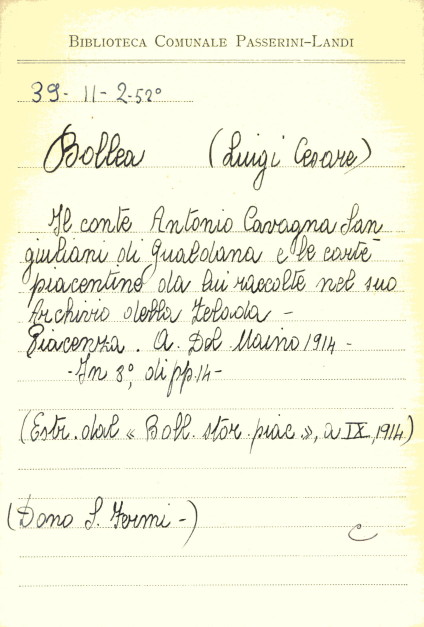 BIBLIOTECA COMUNALE PASSERINI-LANDI
39- II-2-52°
Bollea (Luigi Cesare)
Il conte Antonio Cavagna San
giuliani di Gualdana e le carte
piacentine da lui raccolte nel suo
Archivio della Zelada -
Piacenza. A. Del Maino 1914 -
- In 8°, di pp. 14 -
(Estr. dal « Boll. stor. piac. », a IX, 1914)
(Dono S. Fermi -)
C